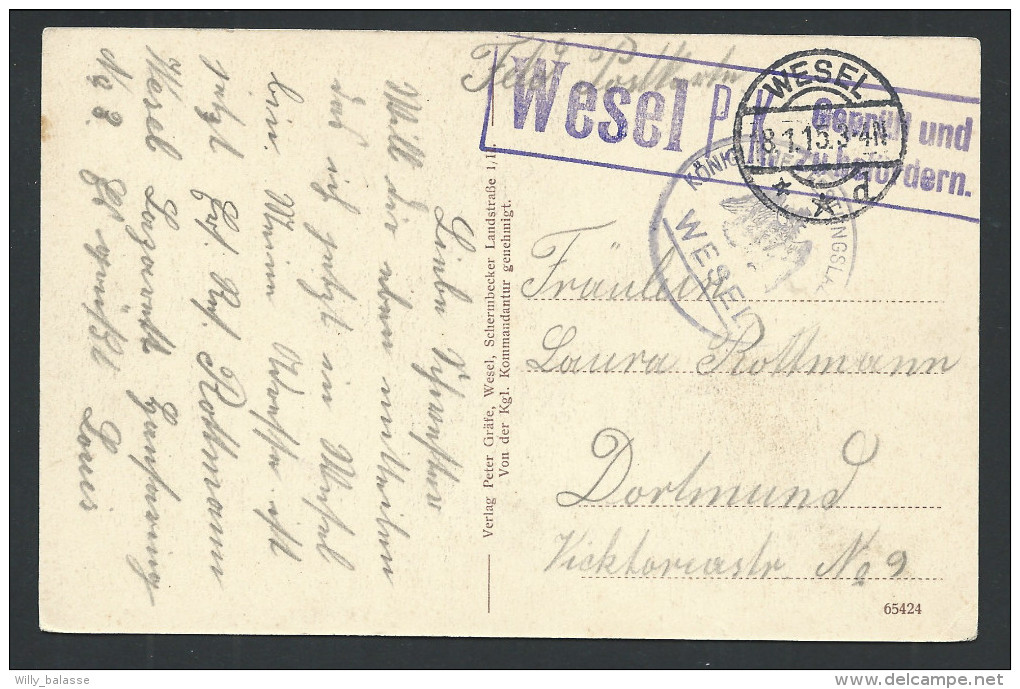 Feld Postkarte
Wesel P. K. Geprüft und
zu befördern.
WESEL
8.1.15.3-4N
* * d
KÖNIGL.
WESEL
Fräulein
Laura Rottmann
Dortmund
Vicktoriastr No 9
65424
Verlag Peter Gräfe, Wesel, Schermbecker Landstraße 1/I.
Von der Kgl. Kommandantur genehmigt.
Liebe Schwester
Will dir eben mitteilen
das ich jetzt in Wesel
bin. Meine Adresse ist
jetzt Ers. Res. Rottmann
Wesel Lazarett
No 8. Es grüßt Louis
Willy_balasse